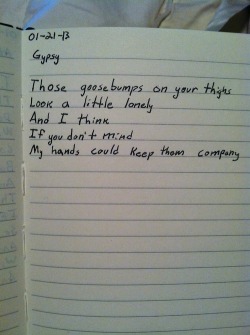 01-21-13
Gypsy
Those goosebumps on your thighs
Look a little lonely
And I think
If you don't mind
My hands could keep them company